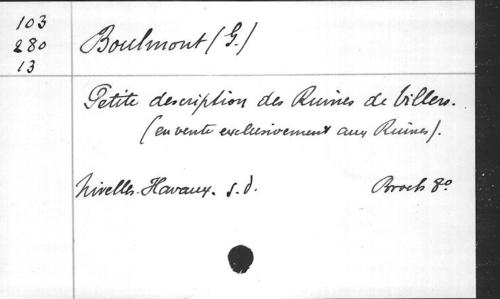 103
280
13
Boulmont (G.)
Petite description des Ruines de Villers.
(en vente exclusivement aux Ruines).
Nivelles. Havaux. s. d. Broch 8º